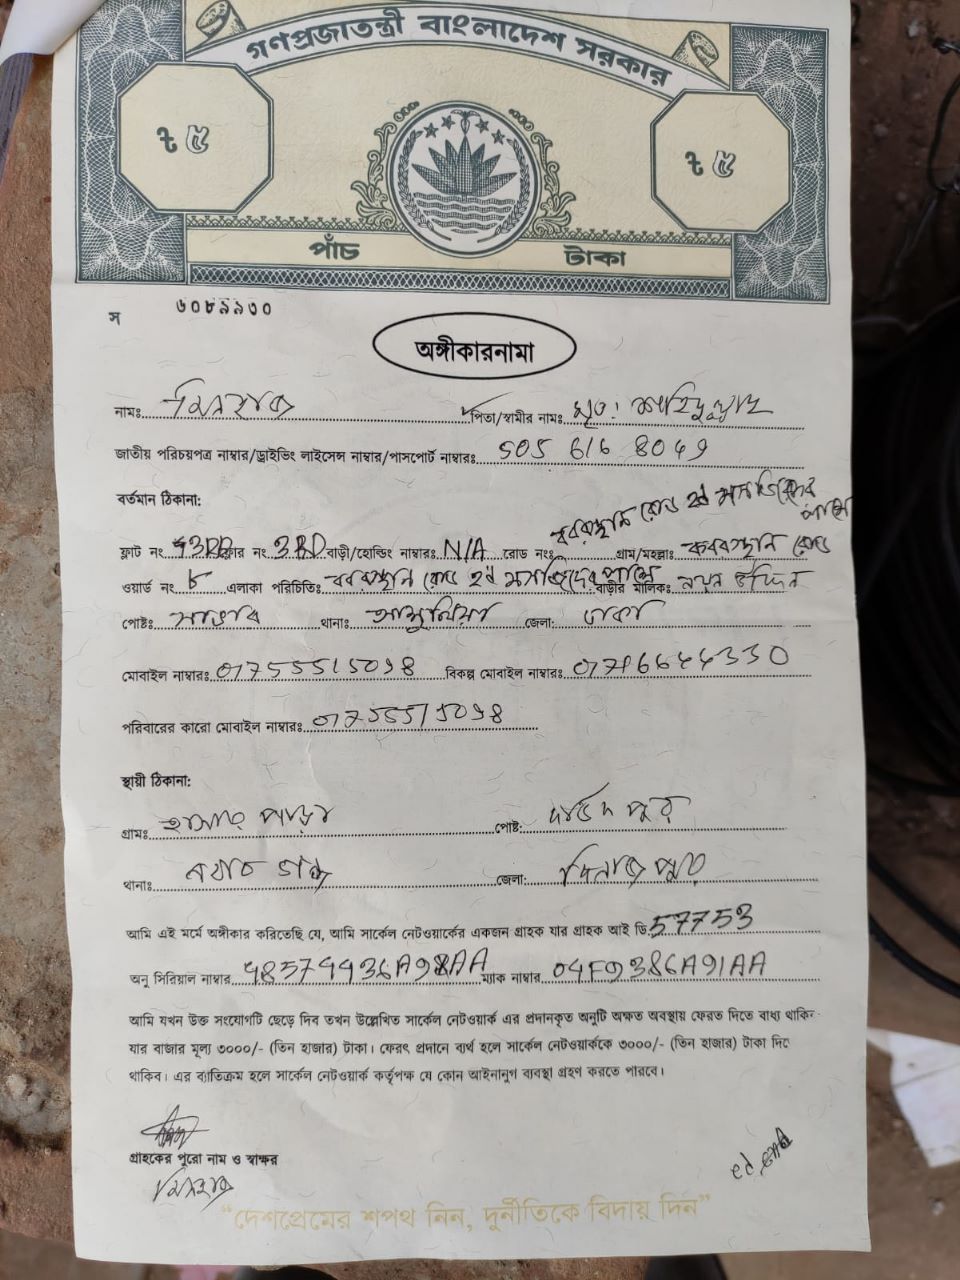 গণপ্রজাতন্ত্রী বাংলাদেশ সরকার
৳ ৫ ৳ ৫
পাঁচ টাকা
স ৬০৮৯৯৩০
অঙ্গীকারনামা
নামঃ মিনহাজ পিতা/স্বামীর নামঃ মৃত: শহিদুল্লাহ
জাতীয় পরিচয়পত্র নাম্বার/ড্রাইভিং লাইসেন্স নাম্বার/পাসপোর্ট নাম্বারঃ 505 616 8049
বর্তমান ঠিকানা:
কবরস্থান রোড ২য় মসজিদের পাশে
ফ্লাট নং ফ্লোর নং 3RD বাড়ী/হোল্ডিং নাম্বারঃ N/A রোড নংঃ গ্রাম/মহল্লাঃ কবরস্থান রোড
ওয়ার্ড নং ৮ এলাকা পরিচিতিঃ কবরস্থান রোড ২য় মসজিদের পাশে বাড়ীর মালিকঃ নয়ন উদ্দিন
পোষ্টঃ সাভার থানাঃ আশুলিয়া জেলা: ঢাকা
মোবাইল নাম্বারঃ 01755515098 বিকল্প মোবাইল নাম্বারঃ
পরিবারের কারো মোবাইল নাম্বারঃ 01755515098
স্থায়ী ঠিকানা:
গ্রামঃ পাড়া পোষ্ট: দাউদপুর
থানাঃ নবাবগঞ্জ জেলা: দিনাজপুর
আমি এই মর্মে অঙ্গীকার করিতেছি যে, আমি সার্কেল নেটওয়ার্কের একজন গ্রাহক যার গ্রাহক আই ডি. 57753
অনু সিরিয়াল নাম্বার ম্যাক নাম্বার 04F9386A91AA
আমি যখন উক্ত সংযোগটি ছেড়ে দিব তখন উল্লেখিত সার্কেল নেটওয়ার্ক এর প্রদানকৃত অনুটি অক্ষত অবস্থায় ফেরত দিতে বাধ্য থাকিব
যার বাজার মূল্য ৩০০০/- (তিন হাজার) টাকা। ফেরৎ প্রদানে ব্যর্থ হলে সার্কেল নেটওয়ার্ককে ৩০০০/- (তিন হাজার) টাকা দিতে
থাকিব। এর ব্যতিক্রম হলে সার্কেল নেটওয়ার্ক কর্তৃপক্ষ যে কোন আইনানুগ ব্যবস্থা গ্রহণ করতে পারবে।
গ্রাহকের পুরো নাম ও স্বাক্ষর
মিনহাজ
“দেশপ্রেমের শপথ নিন, দুর্নীতিকে বিদায় দিন”